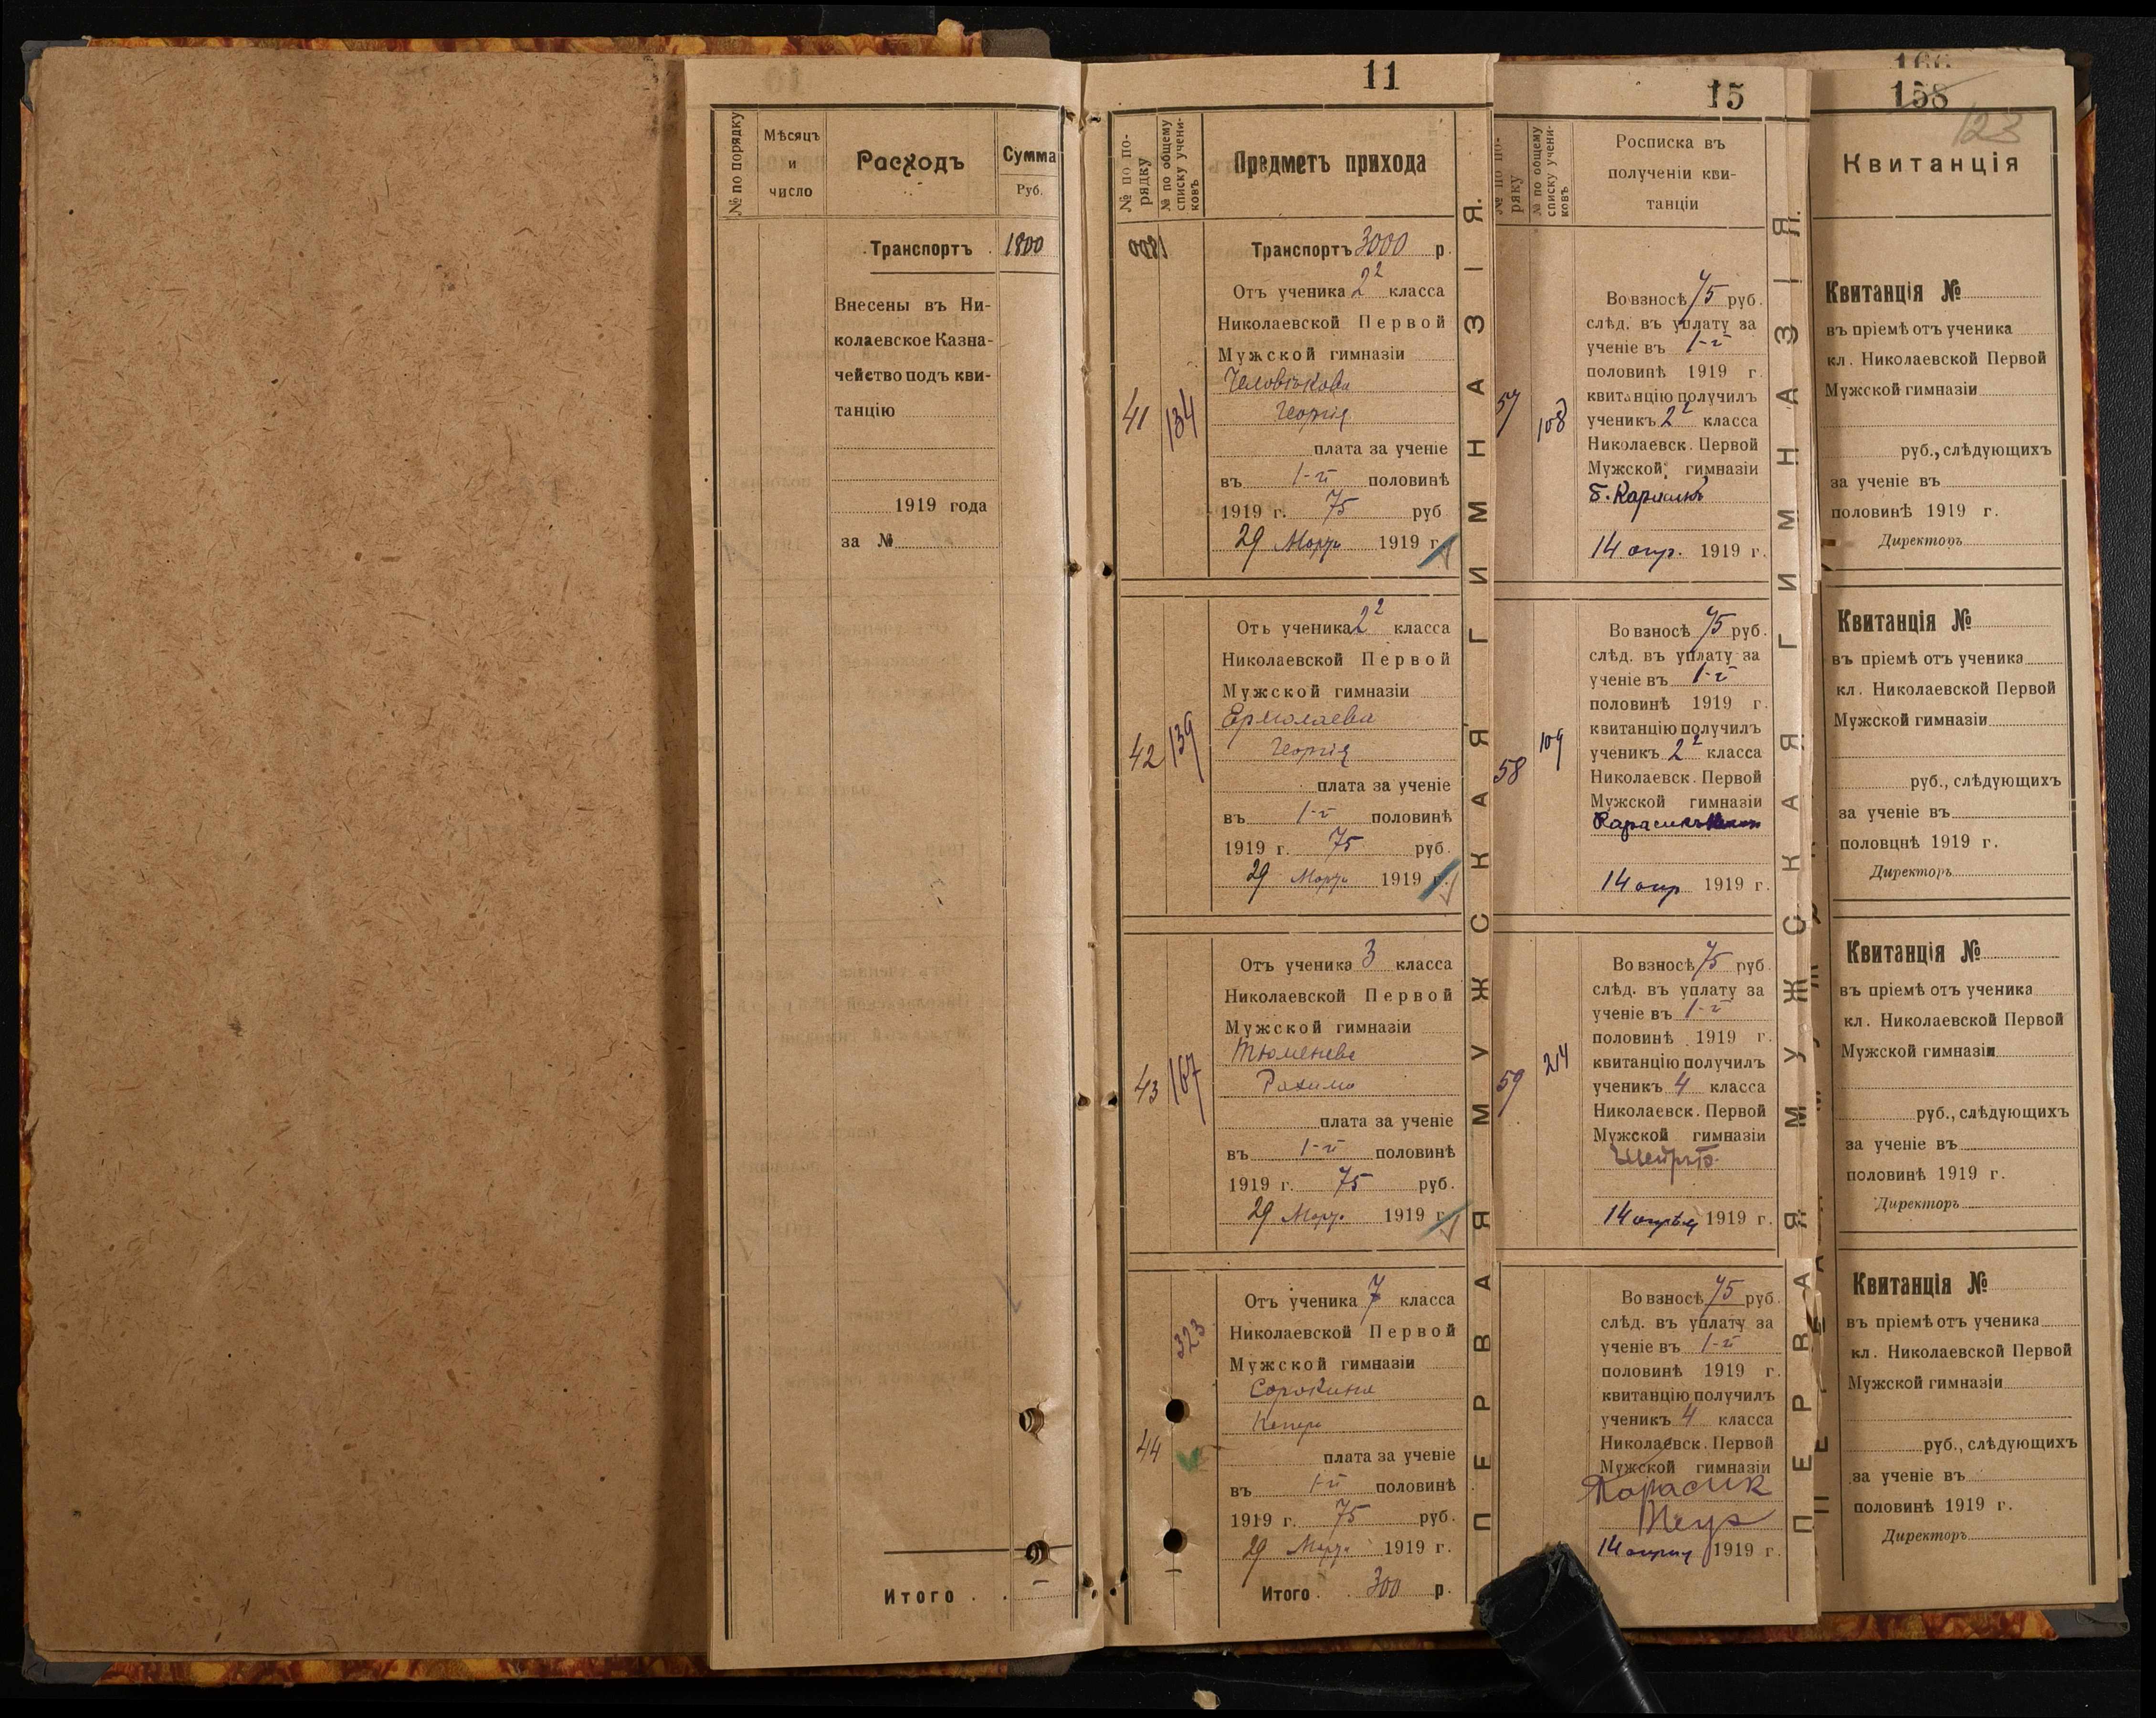 № по порядку
Мѣсяцъ
и
число
Расходъ
Сумма
Руб.
Транспортъ . 1800
Внесены въ Ни-
колаевское Казна-
чейство подъ кви-
танцію
1919 года
за №
Итого . .
11
№ по по-
рядку
№ по общему
списку учени-
ковъ
Предметъ прихода
Транспортъ 3000 р.
41
134
Отъ ученика 2² класса
Николаевской Первой
Мужской гимназіи
Человѣкова
Георгія
плата за ученіе
въ 1-й половинѣ
1919 г. 75 руб
29 Марта 1919 г.
42
139
Отъ ученика 2² класса
Николаевской Первой
Мужской гимназіи
Ермолаева
Георгія
плата за ученіе
въ 1-й половинѣ
1919 г. 75 руб.
29 Марта 1919 г.
43
167
Отъ ученика 3 класса
Николаевской Первой
Мужской гимназіи
Тюменева
плата за ученіе
въ 1-й половинѣ
1919 г. 75 руб.
29 Марта 1919 г.
44
323
Отъ ученика 7 класса
Николаевской Первой
Мужской гимназіи
Сорокина
плата за ученіе
въ 1-й половинѣ
1919 г. 75 руб.
29 Марта 1919 г.
Итого . . 300 р.
ПЕРВАЯ МУЖСКАЯ ГИМНАЗІЯ.
15
№ по по-
ряку
№ по общему
списку учени-
ковъ
Росписка въ
полученіи кви-
танціи
57
108
Во взносѣ 75 руб.
слѣд. въ уплату за
ученіе въ 1-й
половинѣ 1919 г.
квитанцію получилъ
ученикъ 2² класса
Николаевск. Первой
Мужской гимназіи
Б. Карасикъ
14 апр. 1919 г.
58
109
Во взносѣ 75 руб.
слѣд. въ уплату за
ученіе въ 1-й
половинѣ 1919 г.
квитанцію получилъ
ученикъ 2² класса
Николаевск. Первой
Мужской гимназіи
Карасикъ
14 апр 1919 г.
59
214
Во взносѣ 75 руб.
слѣд. въ уплату за
ученіе въ 1-й
половинѣ 1919 г.
квитанцію получилъ
ученикъ 4 класса
Николаевск. Первой
Мужской гимназіи
14 апрѣля 1919 г.
Во взносѣ 75 руб.
слѣд. въ уплату за
ученіе въ 1-й
половинѣ 1919 г.
квитанцію получилъ
ученикъ 4 класса
Николаевск. Первой
Мужской гимназіи
Карасик
14 апрѣля 1919 г.
ПЕРВАЯ МУЖСКАЯ ГИМНАЗІЯ.
166
158
123
Квитанція
Квитанція №
въ пріемѣ отъ ученика
кл. Николаевской Первой
Мужской гимназіи
руб., слѣдующихъ
за ученіе въ
половинѣ 1919 г.
Директоръ
Квитанція №
въ пріемѣ отъ ученика
кл. Николаевской Первой
Мужской гимназіи
руб., слѣдующихъ
за ученіе въ
половцнѣ 1919 г.
Директоръ
Квитанція №
въ пріемѣ отъ ученика
кл. Николаевской Первой
Мужской гимназіи
руб., слѣдующихъ
за ученіе въ
половинѣ 1919 г.
Директоръ
Квитанція №
въ пріемѣ отъ ученика
кл. Николаевской Первой
Мужской гимназіи
руб., слѣдующихъ
за ученіе въ
половинѣ 1919 г.
Директоръ